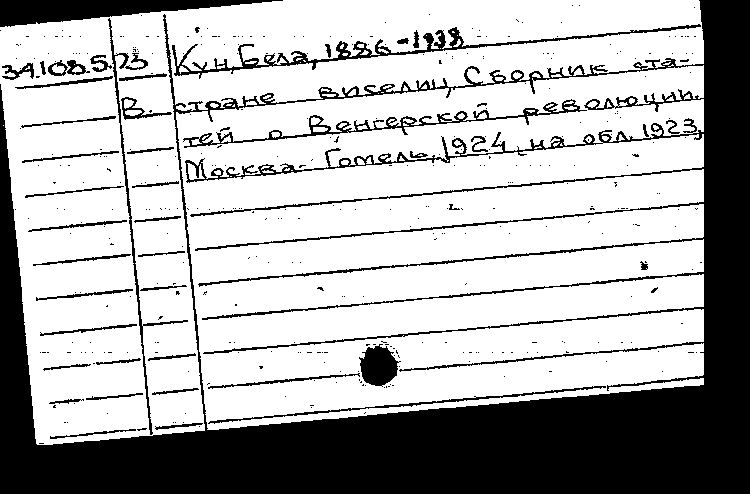 34.108.5.23 Кун, Бела, 1886-1938
В. стране виселиц, Сборник ста-
тей о Венгерской революции.
Москва-Гомель, 1924, на обл. 1923,